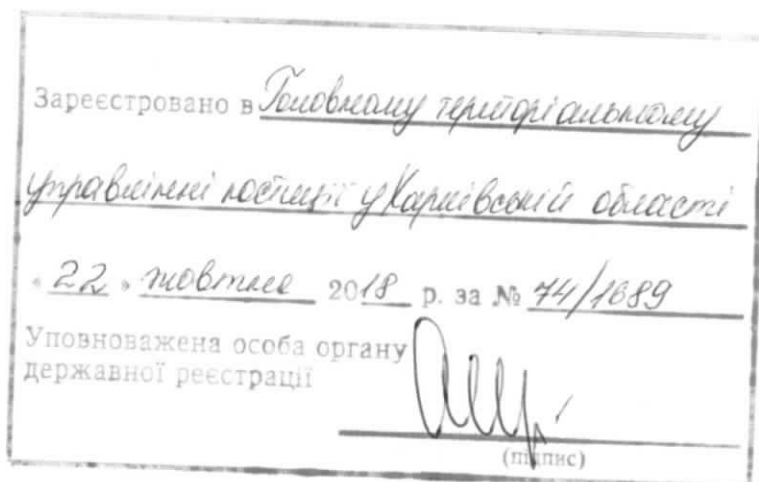 Зареєстровано в Головному територіальному
управлінні юстиції у Харківській області
« 22 » жовтня 2018 р. за № 74/1689
Уповноважена особа органу
державної реєстрації
(підпис)